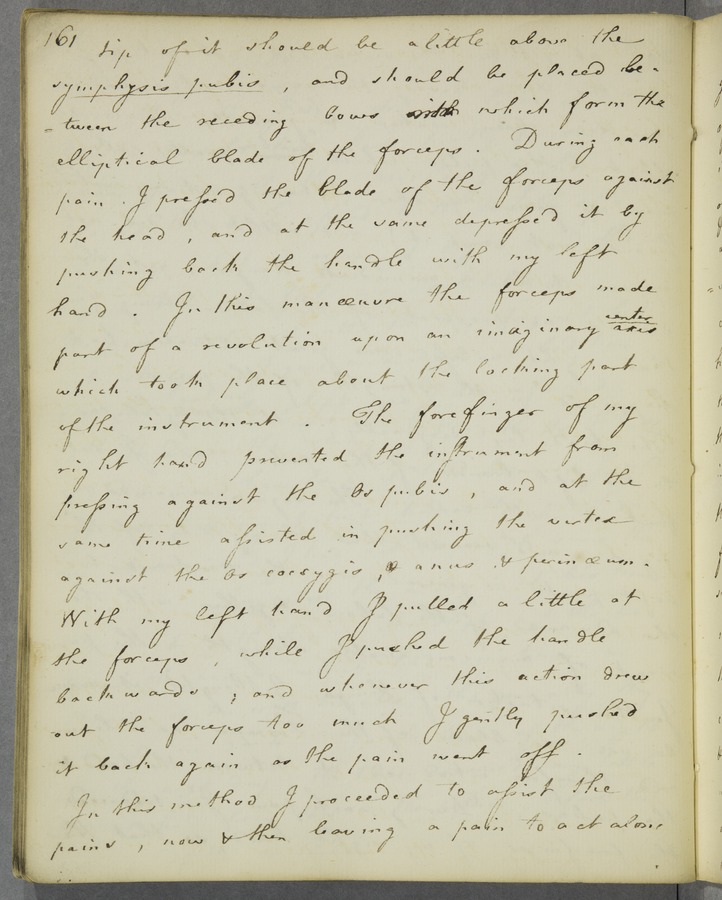 161
tip of it should be a little above the
symphysis pubis, and should be placed be-
=tween the receding bows with which form the
elliptical blade of the forceps. During each
pain. I pressed the blade of the forceps against
the head, and at the same depressed it by
pushing back the handle with my left
hand. In this manœuvre the forceps made
part of a revolution upon an imaginary center axis
which took place about the locking part
of the instrument. The forefinger of my
right hand prevented the instrument from
pressing against the Os pubis, and at the
same time assisted in pushing the vertex
against the Os coccygis, anus & perinæum.
With my left hand I pulled a little at
the forceps, while I pushed the handle
backwards; and whenever this action drew
out the forceps too much I gently pushed
it back again as the pain went off.
In this method I proceeded to assist the
pains, now & then leaving a pain to act alone